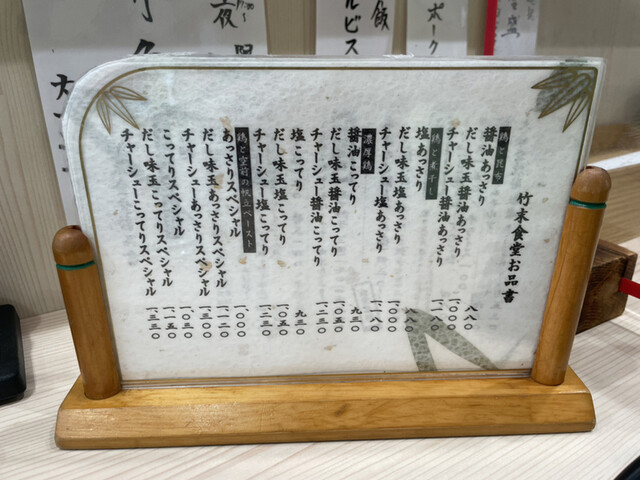 竹末食堂お品書
鶏と昆布
醤油あっさり 八八〇
だし味玉醤油あっさり 一、〇〇〇
チャーシュー醤油あっさり 一、一八〇
鶏と
塩あっさり 八八〇
だし味玉塩あっさり 一、〇〇〇
チャーシュー塩あっさり 一、一八〇
濃厚鶏
醤油こってり 九三〇
だし味玉醤油こってり 一、〇五〇
チャーシュー醤油こってり 一、二三〇
塩こってり 九三〇
だし味玉塩こってり 一、〇五〇
チャーシュー塩こってり 一、二三〇
鶏と空前の帆立ペースト
あっさりスペシャル 一、〇〇〇
だし味玉あっさりスペシャル 一、一二〇
チャーシューあっさりスペシャル 一、三〇〇
こってりスペシャル 一、〇三〇
だし味玉こってりスペシャル 一、一五〇
チャーシューこってりスペシャル 一、三三〇
塩
ポーク
飯
ルビス
夜